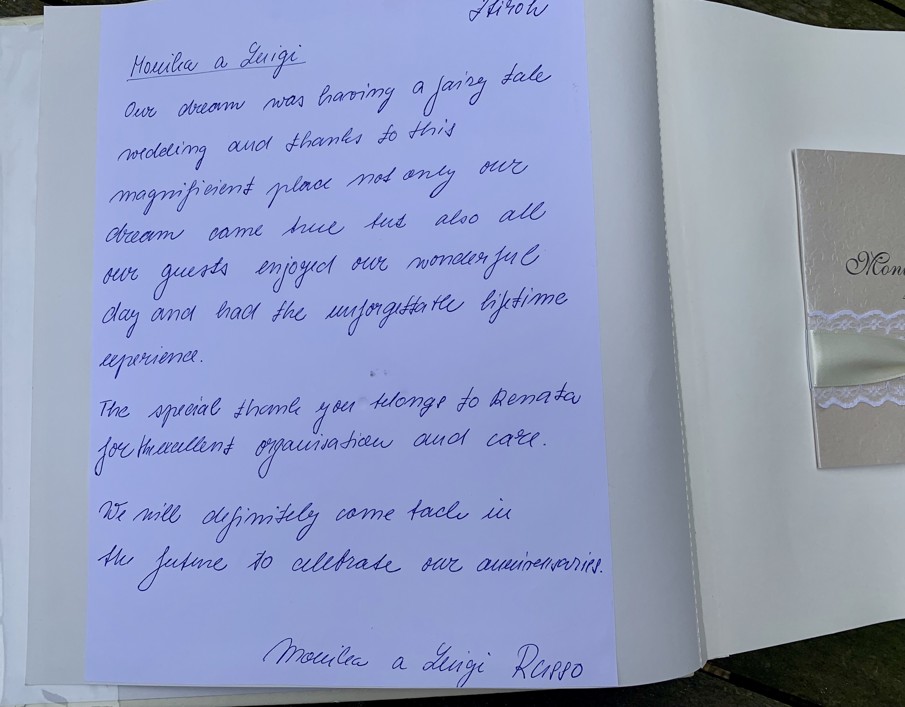 Monika a Luigi
Our dream was having a fairy tale
wedding and thanks to this
magnificient place not only our
dream came true but also all
our guests enjoyed our wonderful
day and had the unforgettable lifetime
experience.
The special thank you belongs to Renata
for excellent organisation and care.
We will definitely come back in
the future to celebrate our anniversaries.
Monika a Luigi Russo
Moni